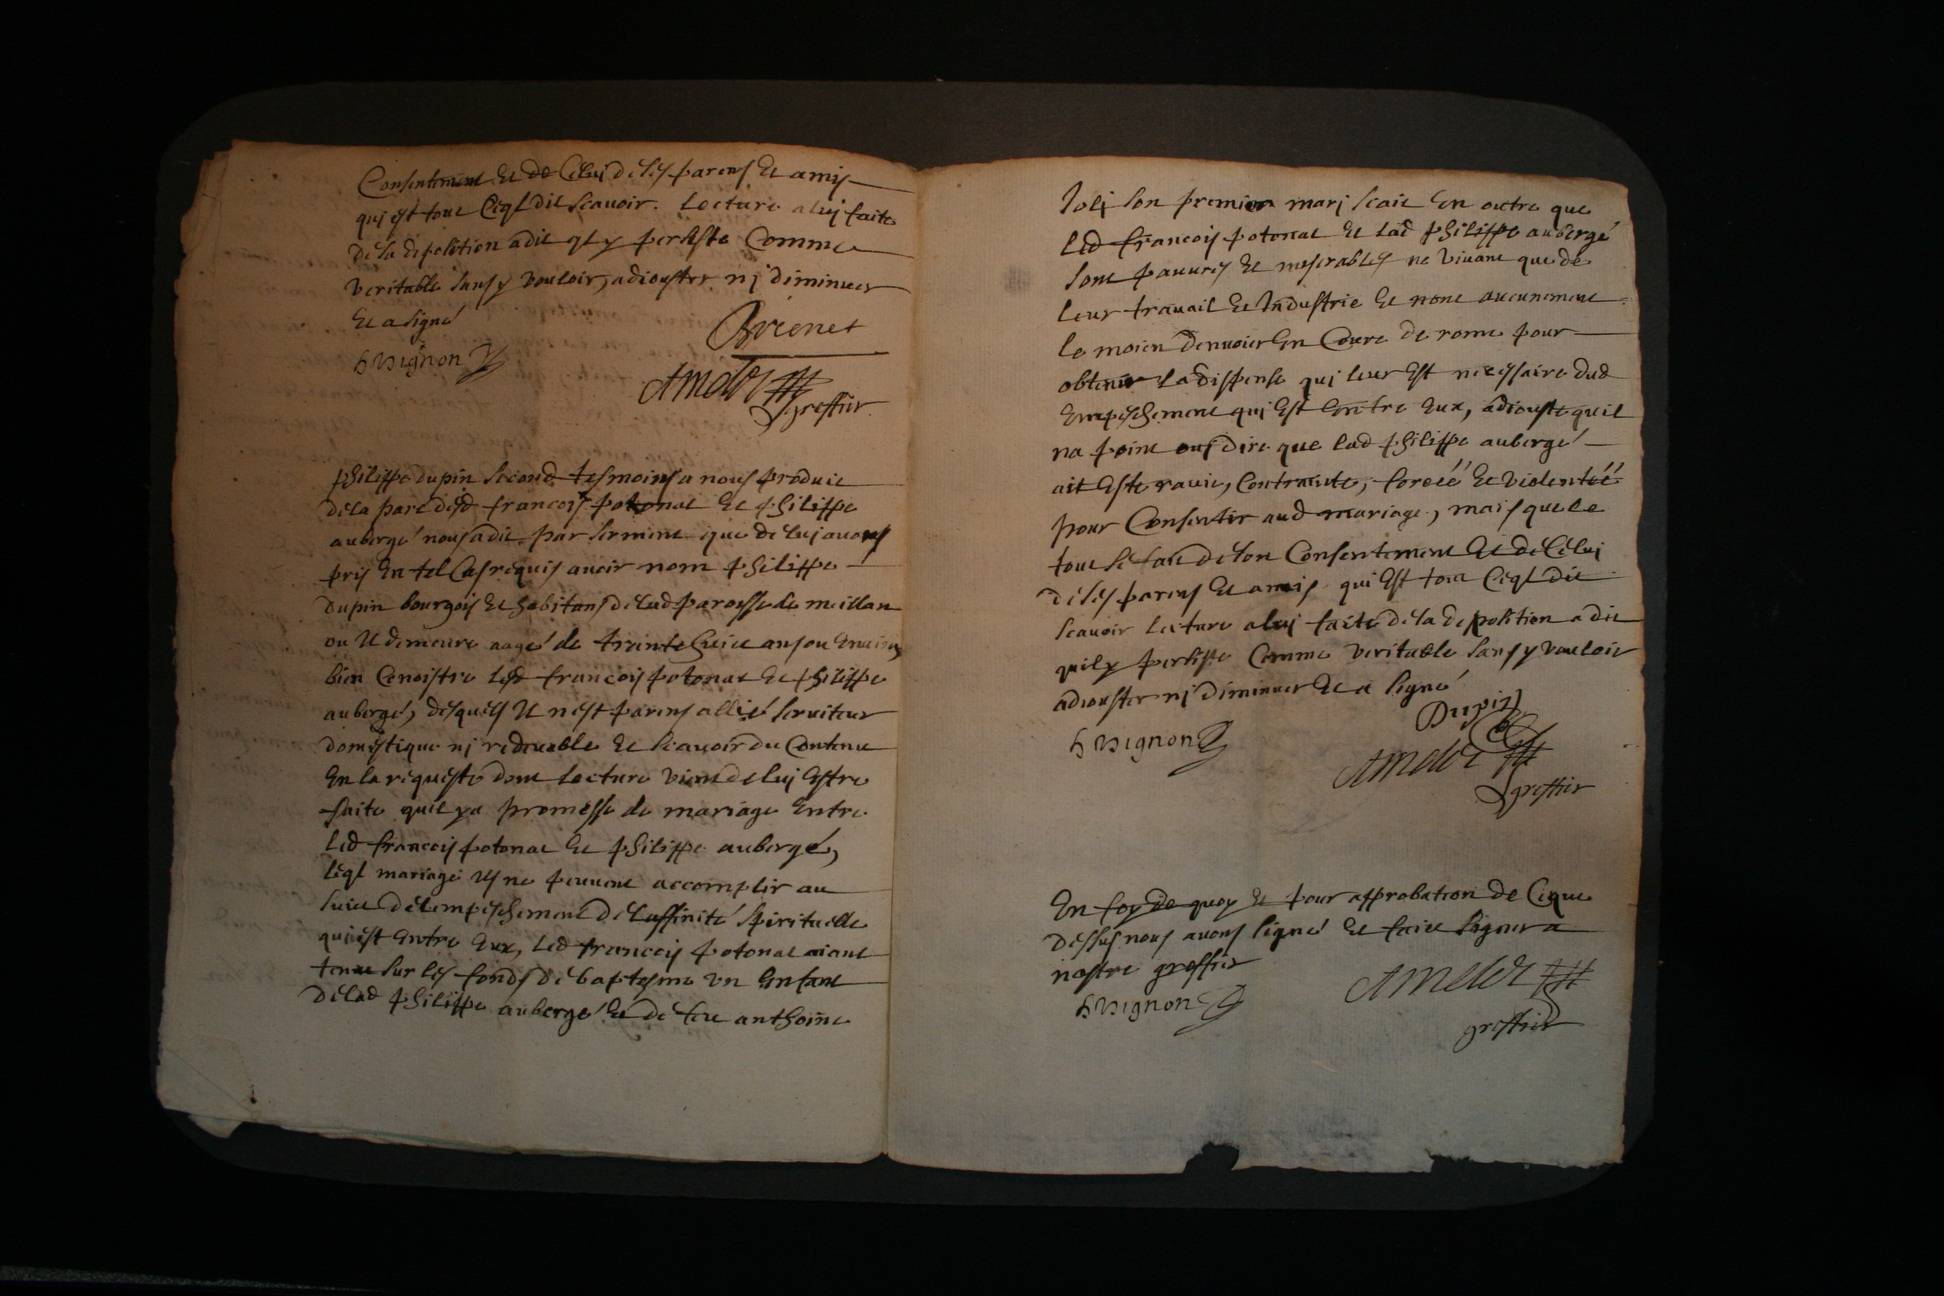 Consentement et de Celui de ses parens et amis
qui est tout Ceql dit scavoir. Lecture a luy faite
de sa deposition a dit ql y persiste Comme
veritable sans y vouloir adiouster ni diminuer
Et a signé
Brienet
h vignon
Amelot
greffier
philippe dupin second tesmoins a nous produit
de la part desd francois potonat et philippe
aubergé nous a dit par serment que de lui avons
pris en tel Cas requis avoir nom philippe
dupin bourgois et habitans de lad paroisse de meillan
ou il demeure aagé de trente huict ans ou environ
bien Conoistre lesd francois potonat et philippe
aubergé, desquels il nest parens allié serviteur
domestique ni redevable et scavoir du Contenu
En la requeste dont lecture vient de lui estre
faite quil y a promesse de mariage Entre
led francois potonat et philippe aubergé,
leql mariage ils ne peuvent accomplir au
suiet de lempeschement de laffinité spirituelle
qui est Entre Eux, led francois potonat aiant
tenu sur les fonds de baptesme un Enfant
de lad philippe aubergé et de feu anthoine
Joli son premier mari scait En outre que
led francois potonat et lad philippe aubergé
sont pauvres et miserables ne vivant que de
leur travail et Industrie et nont aucunement
le moien denvoier En Court de rome pour
obtenir la dispense qui leur Est necessaire dud
Empeschement qui Est Entre Eux, adiouste quil
na point oui dire que lad philippe aubergé
ait Esté ravie, Contrainte, forcéé et violentéé
pour Consentir aud mariage, mais que le
tout se fait de son Consentement et de Celui
de ses parens et amis qui Est tout Ceql dit
scavoir lecture a lui faite de sa deposition a dit
quil y persiste Comme veritable sans y vouloir
adiouster ni diminuer et a signé
Dupin
h vignon
Amelot
greffier
En foy de quoy et pour approbation de Ceque
dessus nous avons signé et faict signer a
nostre greffier
h vignon
Amelot
greffier